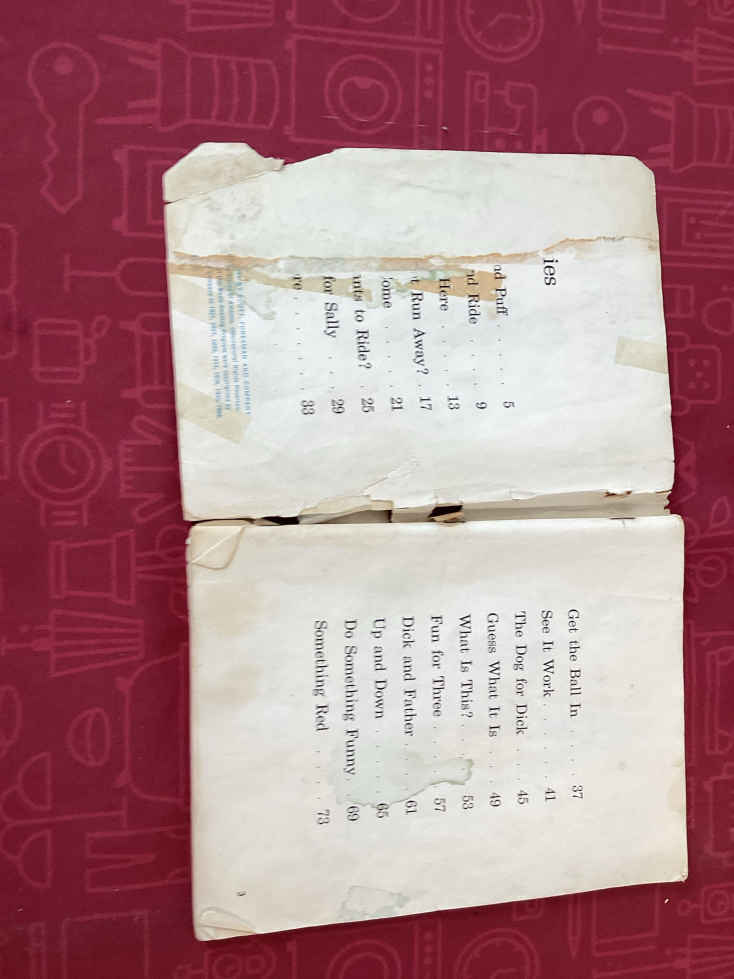 ies
nd Puff . . . . 5
nd Ride . . . . 9
Here . . . . 13
t Run Away? . 17
ome . . . . 21
nts to Ride? . 25
for Sally . . 29
re . . . . . . 33
FORESMAN AND COMPANY
Get the Ball In . . . . 37
See It Work . . . . . 41
The Dog for Dick . . . 45
Guess What It Is . . . 49
What Is This? . . . . 53
Fun for Three . . . . 57
Dick and Father . . . . 61
Up and Down . . . . . 65
Do Something Funny . . 69
Something Red . . . . 73
3